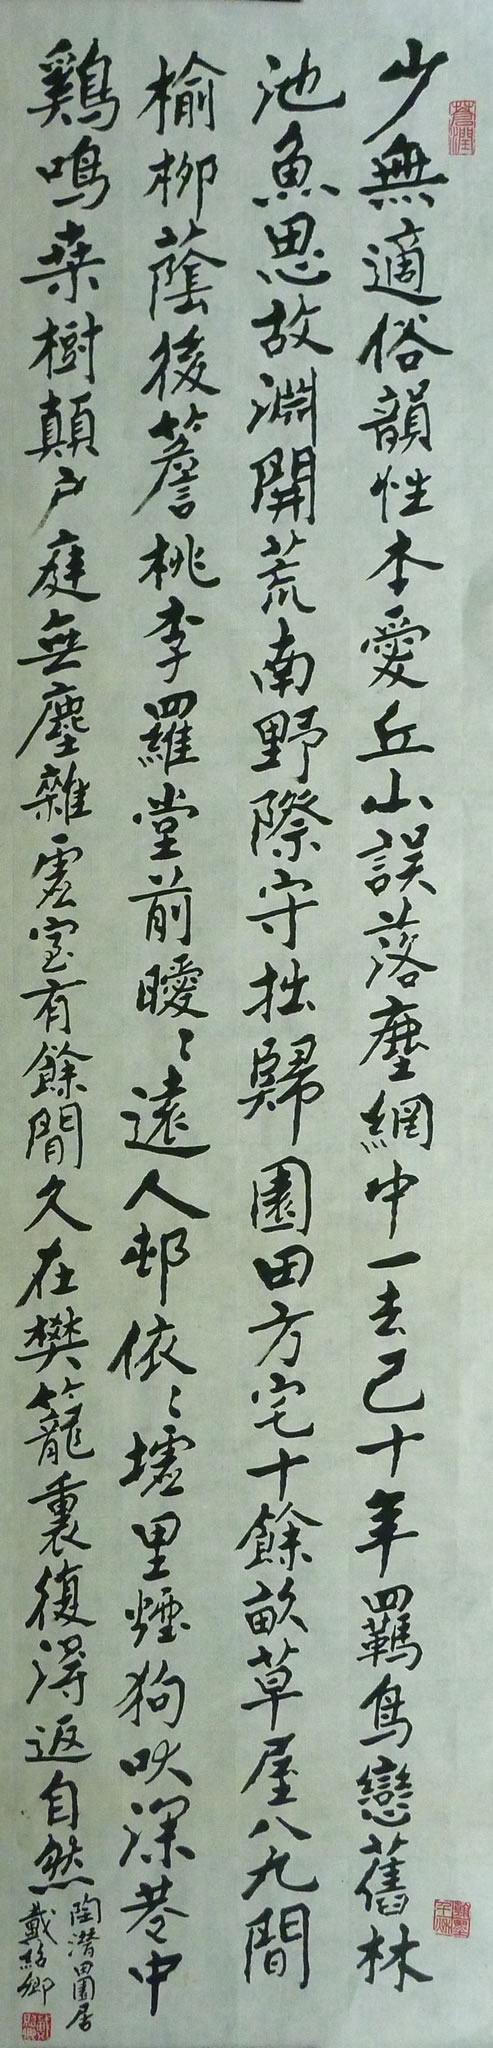 少無適俗韻性本愛丘山誤落塵網中一去已十年羈鳥戀舊林
池魚思故淵開荒南野際守拙歸園田方宅十餘畝草屋八九間
榆柳蔭後簷桃李羅堂前曖〻遠人邨依〻墟里煙狗吠深巷中
鷄鳴桒樹顛戶庭無塵雜虛室有餘間久在樊籠裏復得返自然
陶潜田園居
戴紹卿